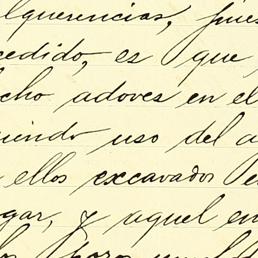 lquerencias, pues
cedido, es que
cho adoves en el
iendo uso del a
ellos excavados e
gar, y aquel en